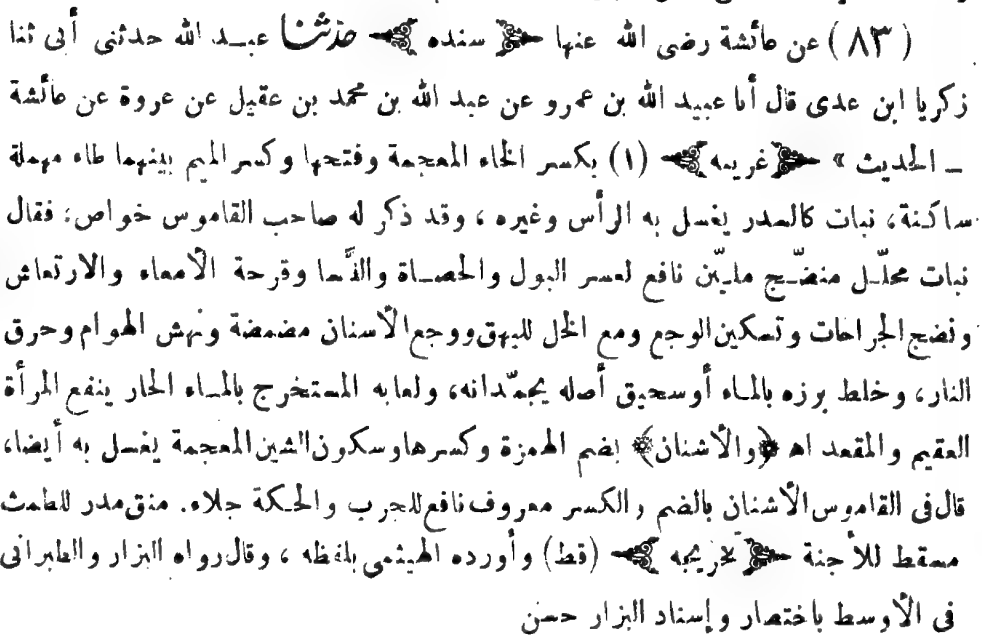 (٨٣) عن عائشة رضى الله عنها ﴿ سنده ﴾ حدثنا عبد الله حدثنى أبى ثنا
زكريا ابن عدى قال أنا عبيد الله بن عمرو عن عبد الله بن محمد بن عقيل عن عروة عن عائشة
ـ الحديث » ﴿ غريبه ﴾ (١) بكسر الخاء المعجمة وفتحها وكسر الميم بينهما طاء مهملة
ساكنة، نبات كالسدر يغسل به الرأس وغيره ، وقد ذكر له صاحب القاموس خواص: فقال
نبات محلّل منضّج مليّن نافع لعسر البول والحصاة والنَّسا وقرحة الأمعاء والارتعاش
ونضج الجراحات وتسكين الوجع ومع الخل للبهق ووجع الأسنان مضمضة ونهش الهوام وحرق
النار، وخلط برزه بالماء أو سحيق أصله يجمّدانه، ولعابه المستخرج بالماء الحار ينفع المرأة
العقيم والمقعد اه ﴿والأشنان﴾ بضم الهمزة وكسرها وسكون الشين المعجمة يغسل به أيضا،
قال فى القاموس الأشنان بالضم والكسر معروف نافع للجرب والحكة جلاء. منق مدر للطمث
مسقط للأجنة ﴿ تخريجه ﴾ (قط) وأورده الهيثمى بلفظه ، وقال رواه البزار والطبرانى
فى الأوسط باختصار وإسناد البزار حسن